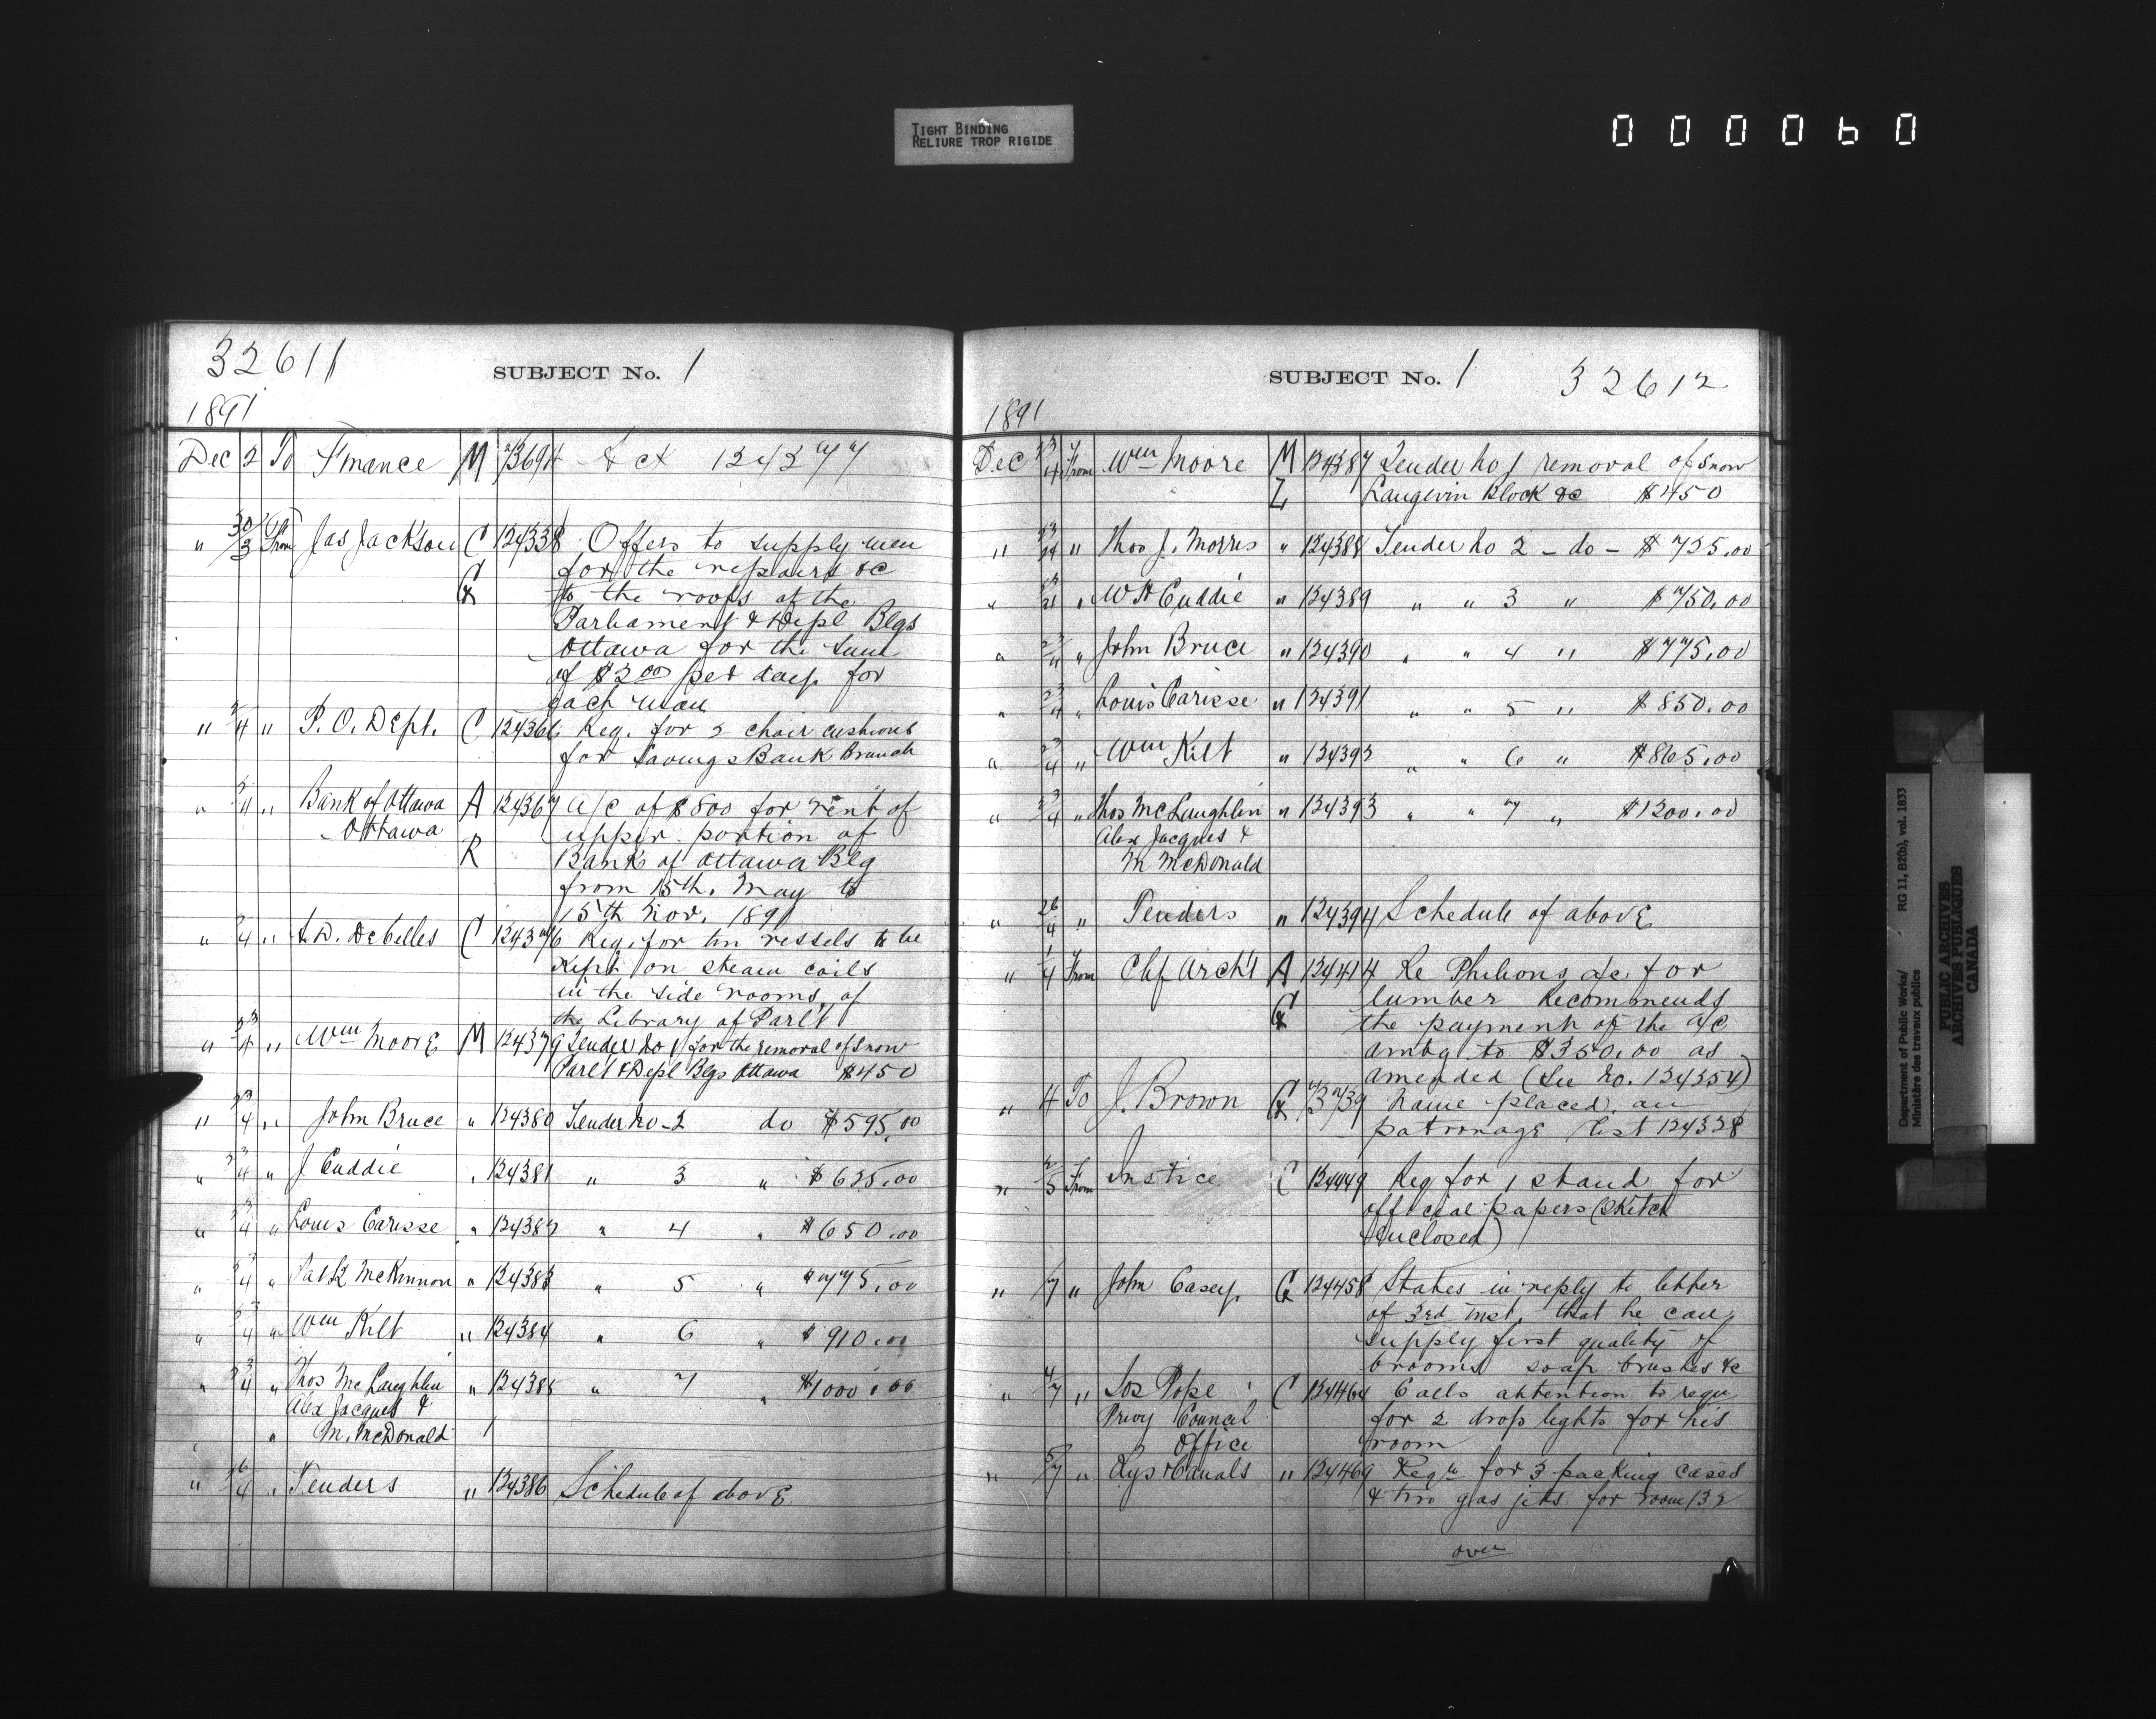 TIGHT BINDING
RELIURE TROP RIGIDE
000060
32611
SUBJECT No. 1
1891
Dec 2 To Finance M Act 124277
" 30/3 From Jas Jackson C 124338 Offers to supply men
for the repairs &c
G to the roofs of the
Parliament & Depl Blgs
Ottawa for the sum
of $2.00 per day for
each man
" 2/4 " P.O. Dept. C 124366 Req. for 2 chair cushions
for Savings Bank Branch
" " Bank of Ottawa A 124367 A/c of $800 for rent of
Ottawa upper portion of
R Bank of Ottawa Blg
from 15th. May to
15th Nov. 1891
" 2/4 " A.D. DeCelles C 124376 Req. for tin vessels to be
Kept on steam coils
in the side rooms of
the Library of Parlt
" 23/4 " Wm Moore M 124379 Tender No 1 for the removal of snow
Parlt & Depl Blgs Ottawa $450
" 23/4 " John Bruce " 124380 Tender No 2 do $595.00
" 23/4 " J Cuddie " 124381 " 3 " $625.00
" 23/4 " Louis Carisse " 124382 " 4 " $650.00
" 23/4 " Patk McKinnon " 124383 " 5 " $775.00
" 23/4 " Wm Kilt " 124384 " 6 " $910.00
" 23/4 " Thos McLaughlin " 124385 " 7 " $1000.00
Alex Jacques &
" M. McDonald
" 26/4 " Tenders " 124386 Schedule of above
SUBJECT No. 1 32612
1891
Dec 23/4 From Wm Moore M 124387 Tender No 1 removal of snow
L Langevin Block &c $450
" 23/4 " Thos J. Morris " 124388 Tender No 2 - do - $725.00
" 23/4 " W H Cuddie " 124389 " " 3 " $750.00
" 23/4 " John Bruce " 124390 " " 4 " $775.00
" 23/4 " Louis Carisse " 124391 " " 5 " $850.00
" 23/4 " Wm Kilt " 124392 " " 6 " $865.00
" 23/4 " Thos McLaughlin " 124393 " " 7 " $1200.00
Alex Jacques &
M McDonald
" 26/4 " Tenders " 124394 Schedule of above
" 1/4 From Chf Archt A 124414 Re Philions a/c for
lumber Recommends
G the payment of the a/c
amtg to $350.00 as
amended (See No. 124354)
" 4 To J. Brown G Name placed on
patronage list 124328
" 2/5 From Justice C 124449 Req for 1 stand for
official papers (Sketch
enclosed)
" /7 " John Casey G 124458 States in reply to letter
of 3rd inst. that he can
supply first quality of
brooms soap brushes &c
" 4/7 " Jos Pope C 124464 Calls attention to requ
Privy Council for 2 drop lights for his
Office room
" 5/7 " Rys & Canals " 124469 Reqn for 3 packing cases
& two gas jets for room 132
over
Department of Public Works/
Ministère des travaux publics
RG 11, B2(b), vol. 1833
PUBLIC ARCHIVES
ARCHIVES PUBLIQUES
CANADA